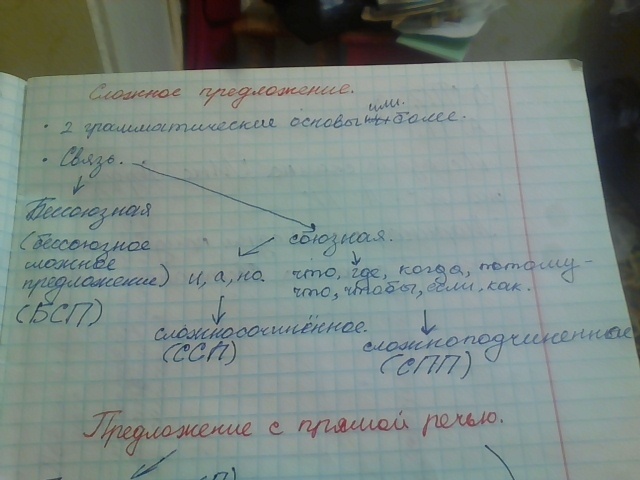 Сложное предложение.
• 2 грамматические основы или более.
• Связь.
Бессоюзная
(бессоюзное
сложное
предложение)
(БСП)
союзная.
и, а, но.
что, где, когда, потому-
что, чтобы, если, как.
сложносочинённое.
(ССП)
сложноподчиненное
(СПП)
Предложение с прямой речью.